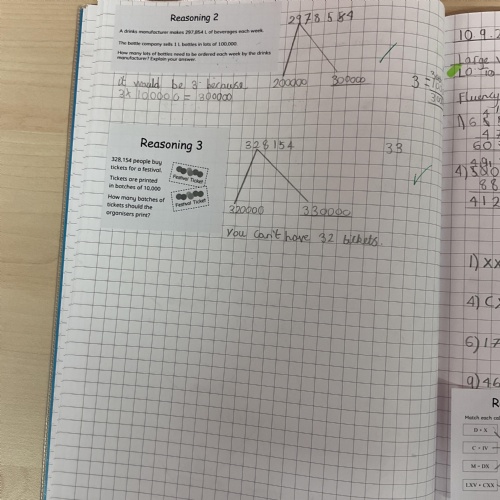 Reasoning 2
A drinks manufacturer makes 297,854 L of beverages each week.
The bottle company sells 1 L bottles in lots of 100,000.
How many lots of bottles need to be ordered each week by the drinks
manufacturer? Explain your answer.
2978584
200000 300000
It would be 3 because
3x 100000 = 300000
Reasoning 3
328,154 people buy
tickets for a festival.
Tickets are printed
in batches of 10,000
How many batches of
tickets should the
organisers print?
Festival Ticket
Festival Ticket
328154
33
320000 330000
You can't have 32
10 9.
Fluency
1)
4)
412
1) XX
4) C
6) 17
9) 46
R
Match each
D + X
C + IV
M + DX
LXV + CXX